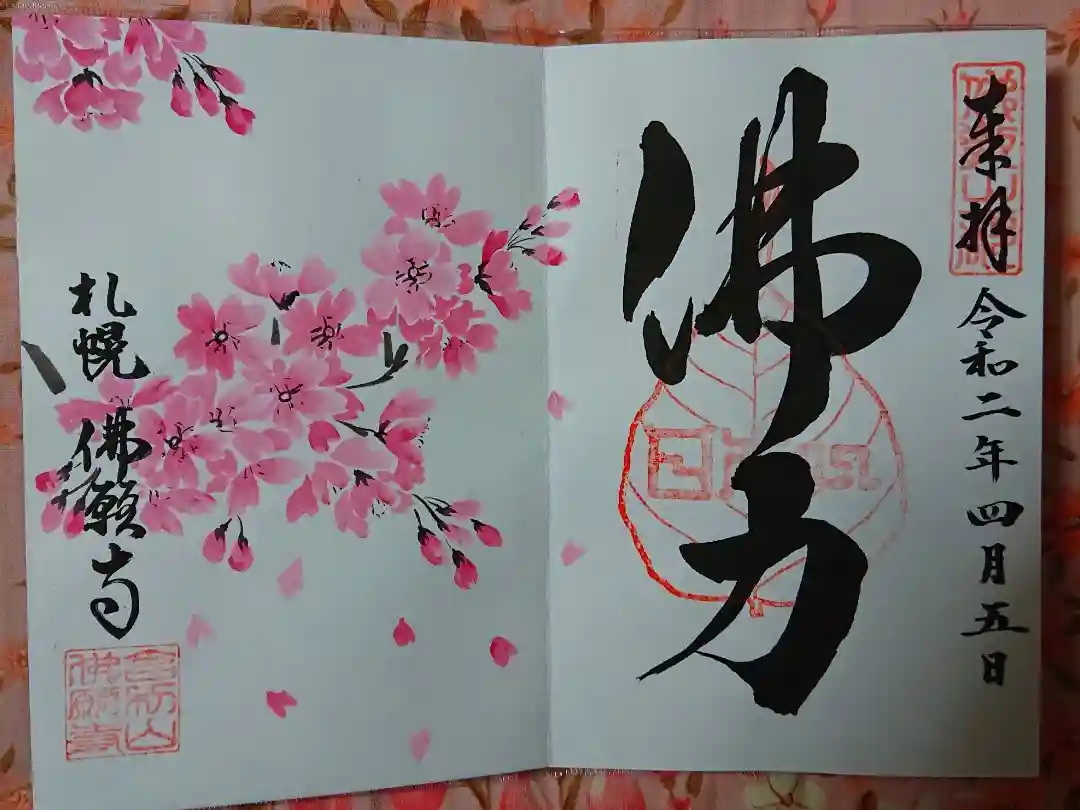 奉拝
令和二年四月五日
佛力
札幌
佛願寺